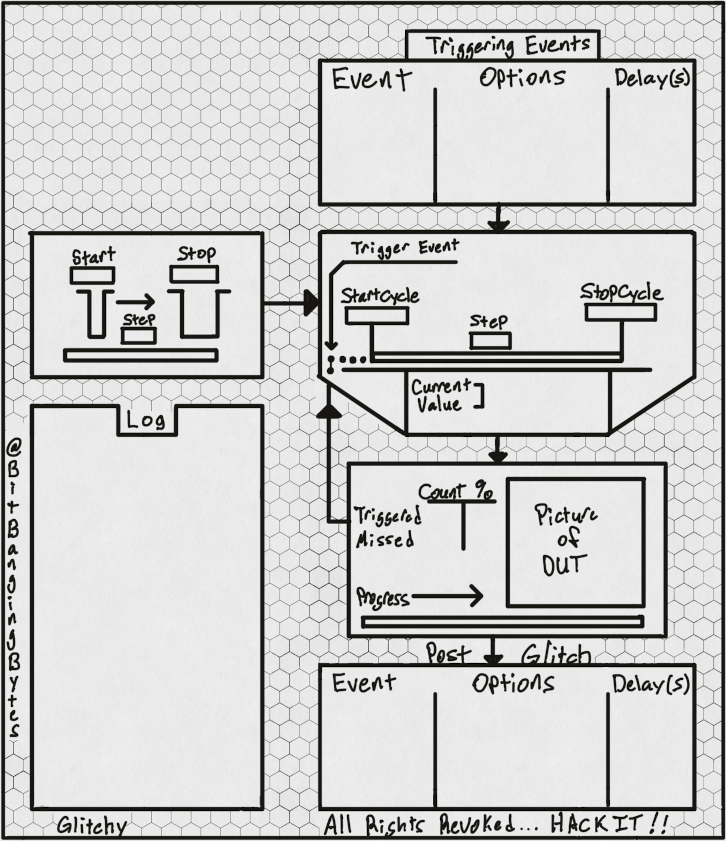 Triggering Events
Event Options Delay(s)
Start Stop
Step
Trigger Event
StartCycle StopCycle
Step
Current
Value
Log
@BitBangingBytes
Count %
Triggered
Missed
Progress
Picture
of
DUT
Post Glitch
Event Options Delay(s)
Glitchy
All Rights Revoked... HACK IT!!